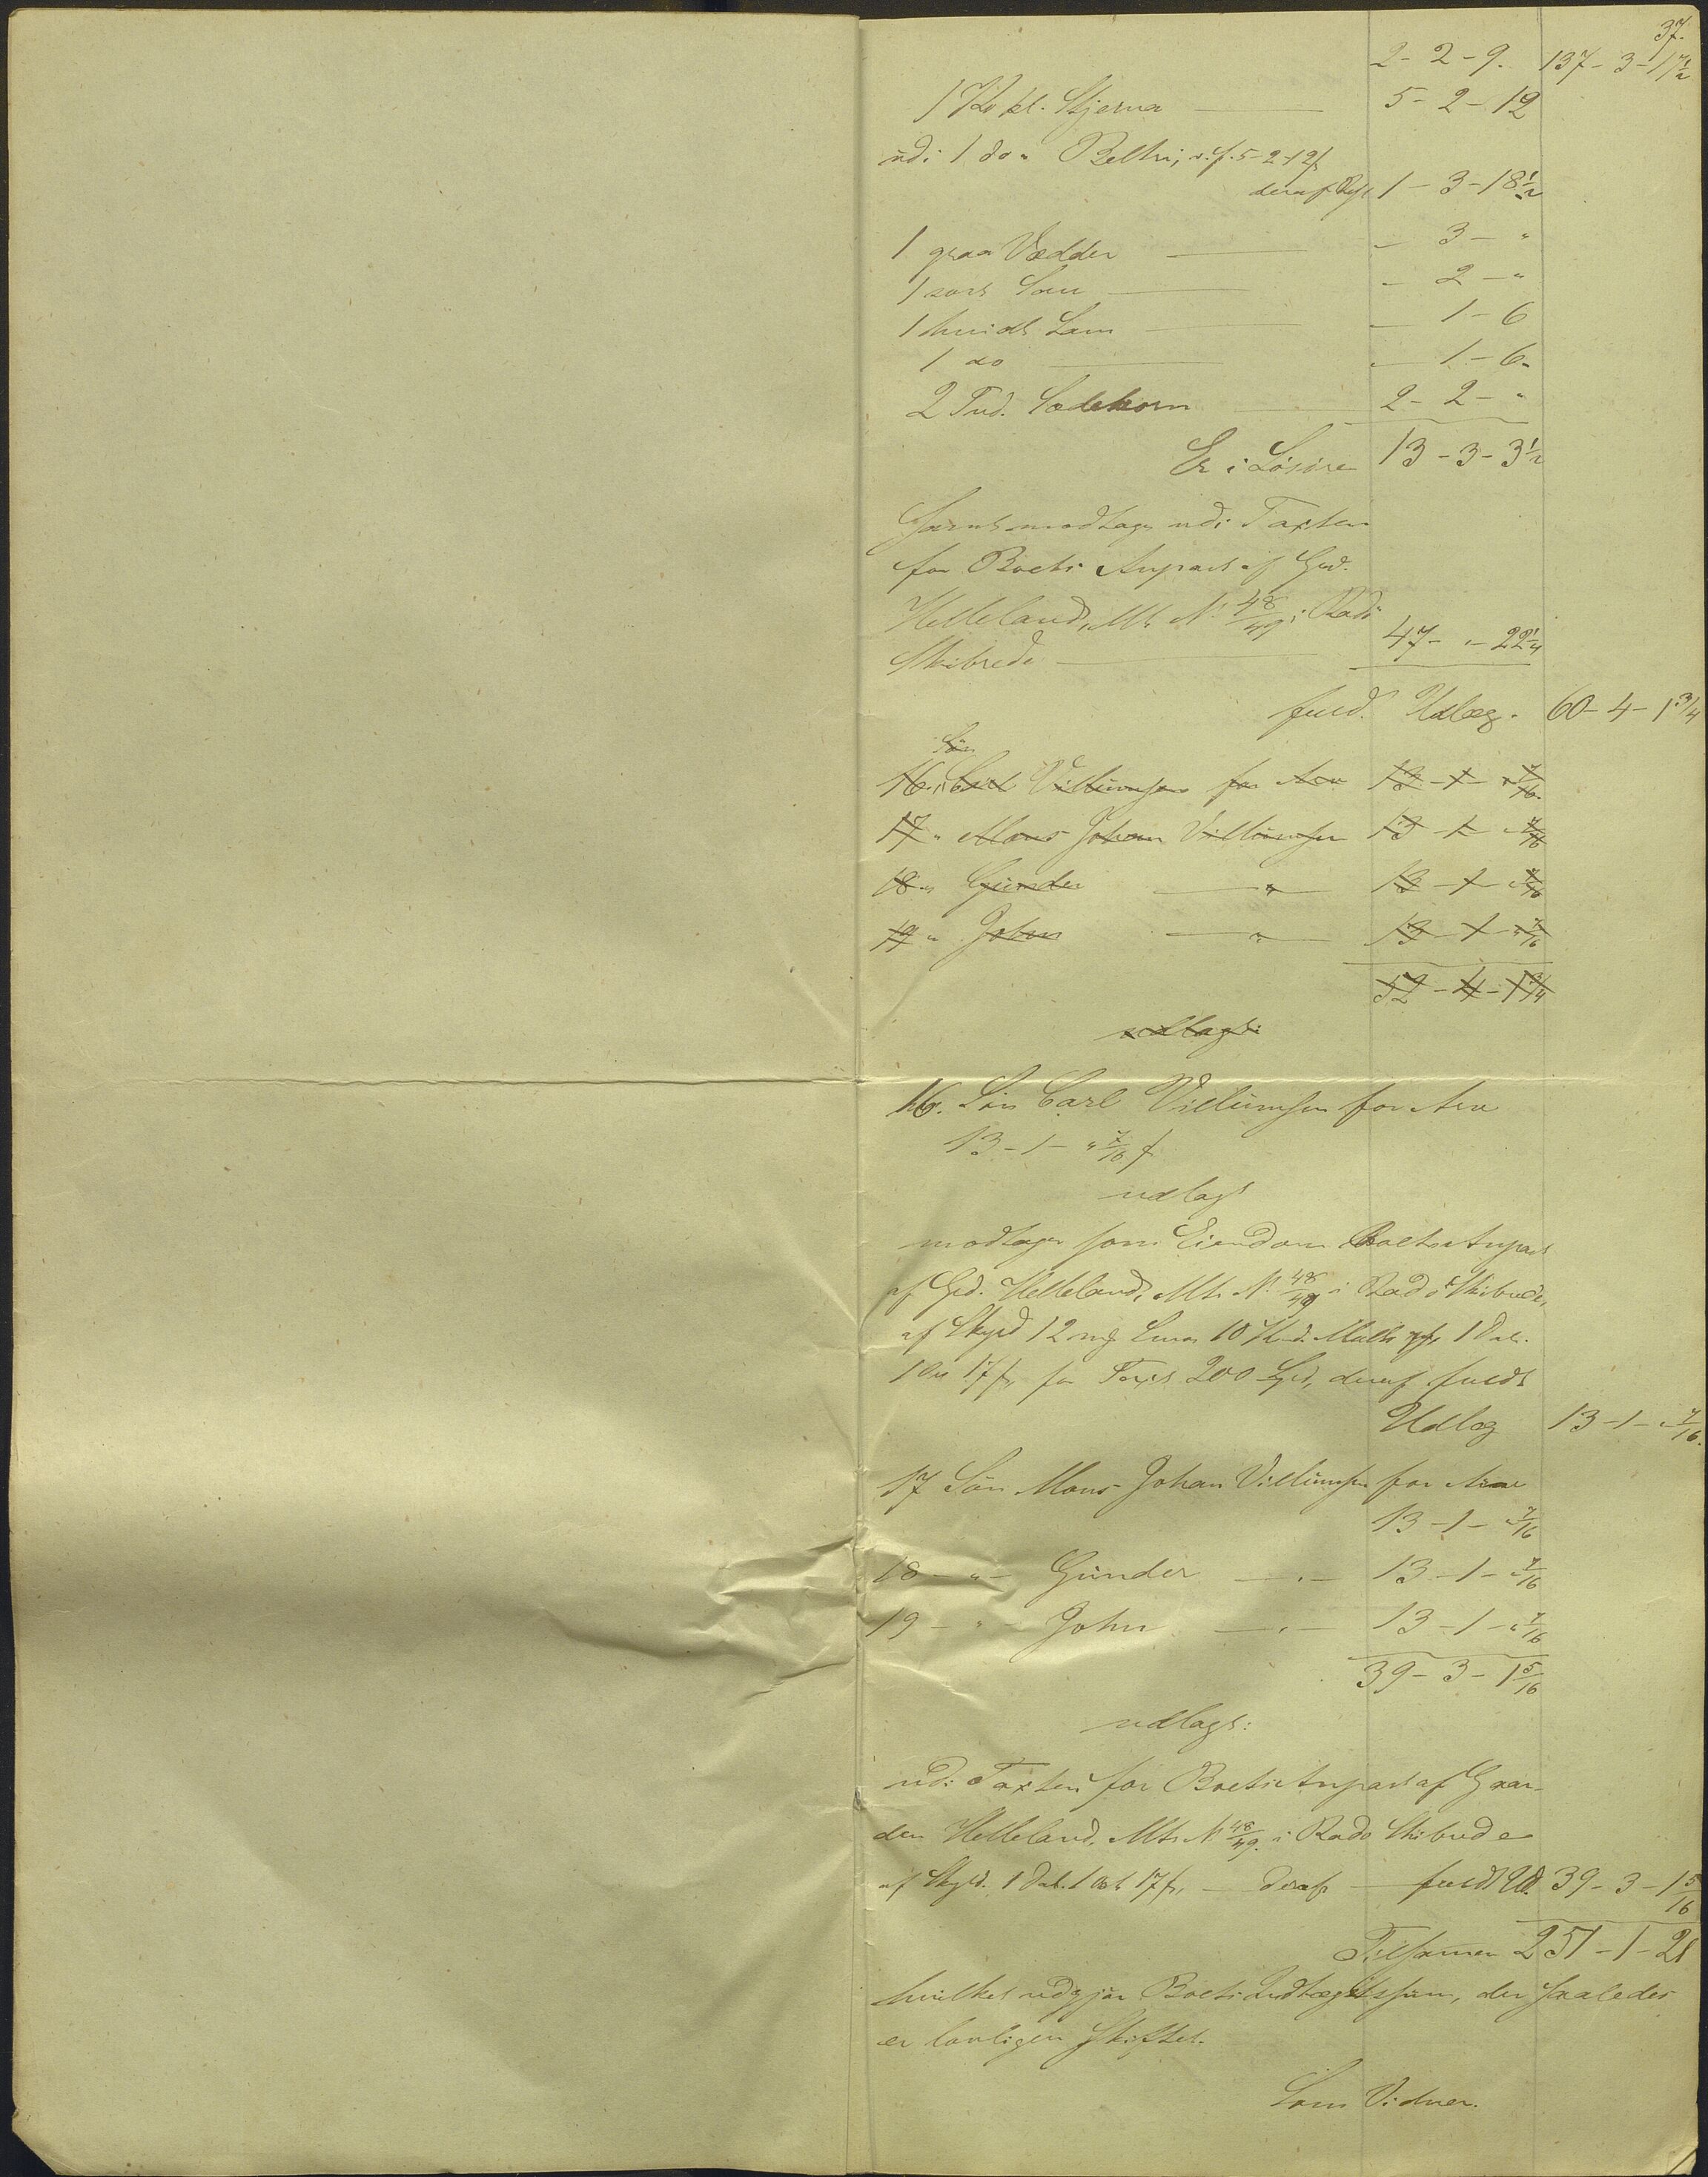 37.
2 - 2 - 9. 137 - 3 - 17½
1 Ko kl. Stjerna — 5 - 2 - 12
udi 1 do „ Beltri, v. f. 5-2-12f
deraf Rest 1 - 3 - 18½
1 graa Vædder — „ 3 - „
1 sort Sou — „ 2 - „
1 hvidt Lam — „ 1 - 6
1 do — „ 1 - 6 „
2 Tnd. Sædekorn 2 - 2 - „
Er i Løsøre 13 - 3 - 3½
Fornt modtage udi Taxten
for Boets Anpart af Grd.
Helleland, Mt. N. 48/49 i Radø
Skibrede — 47 - „ - 22¼
fuld. Udlæg. 60 - 4 - 1 3/4
Søn
16. Carl Villumsen for Arv 13 - 1 - „ 7/16.
17 „ Mons Johan Villumsen 13 - 1 - „ 7/16
18 „ Gunder — „ — 13 - 1 - „ 7/16
19 „ John — „ — 13 - 1 - „ 7/16
52 - 4 - 1 3/4
udlagt:
16. Søn Carl Villumsen for Arv
13 - 1 - „ 7/16 f
udlagt
modtager som Eiendom Boets Anpart
af Grd. Helleland, Mt. N. 48/49 i Radø Skibrede,
af Skyld 12 mg Smør 10 Kand. Malt 1 Dal.
1 Ort 17 f, for Taxt 200 Spd, deraf fuldt
Udlæg 13 - 1 - „ 7/16.
17 Søn Mons Johan Villumsen for Arv
13 - 1 - „ 7/16
18 - „ - Gunder — „ — 13 - 1 - „ 7/16
19 - „ - John — „ — 13 - 1 - „ 7/16
39 - 3 - 1 5/16
udlagt:
udi Taxten for Boets Anpart af Gaar-
den Helleland, Mt. N. 48/49. i Radø Skibrede
af Skyld. 1 Dal. 1 Ort 17 f, — deraf — fuldt Udl. 39 - 3 - 1 5/16
Tilsammen 251 - 1 - 21
hvilket udgjør Boets Indtægtssum, der saaledes
er lovligen skiftet.
Som Vidner.